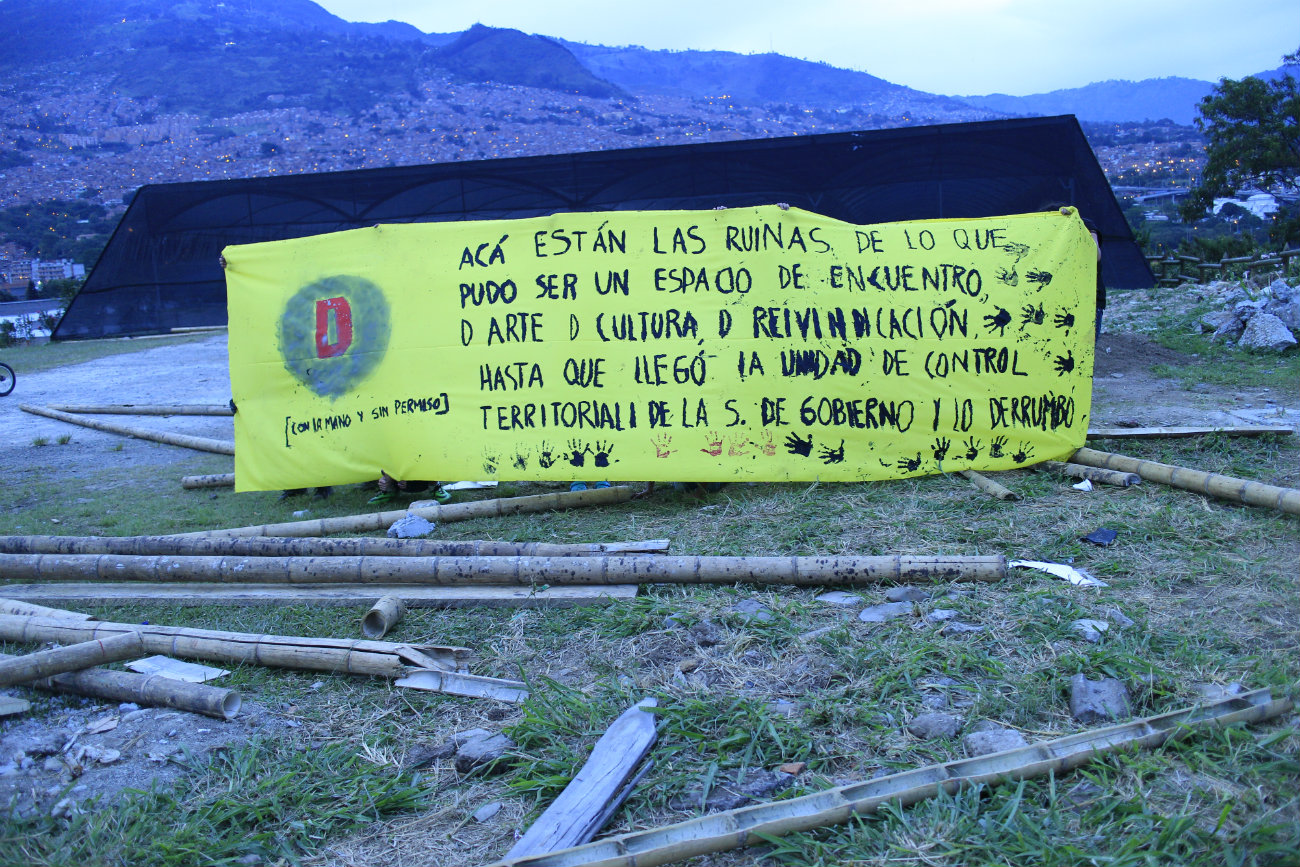 D
[CON LA MANO Y SIN PERMISO]
ACÁ ESTÁN LAS RUINAS DE LO QUE
PUDO SER UN ESPACIO DE ENCUENTRO,
D ARTE D CULTURA, D REIVINDICACIÓN,
HASTA QUE LLEGÓ LA UNIDAD DE CONTROL
TERRITORIAL DE LA S. DE GOBIERNO Y LO DERRUMBO